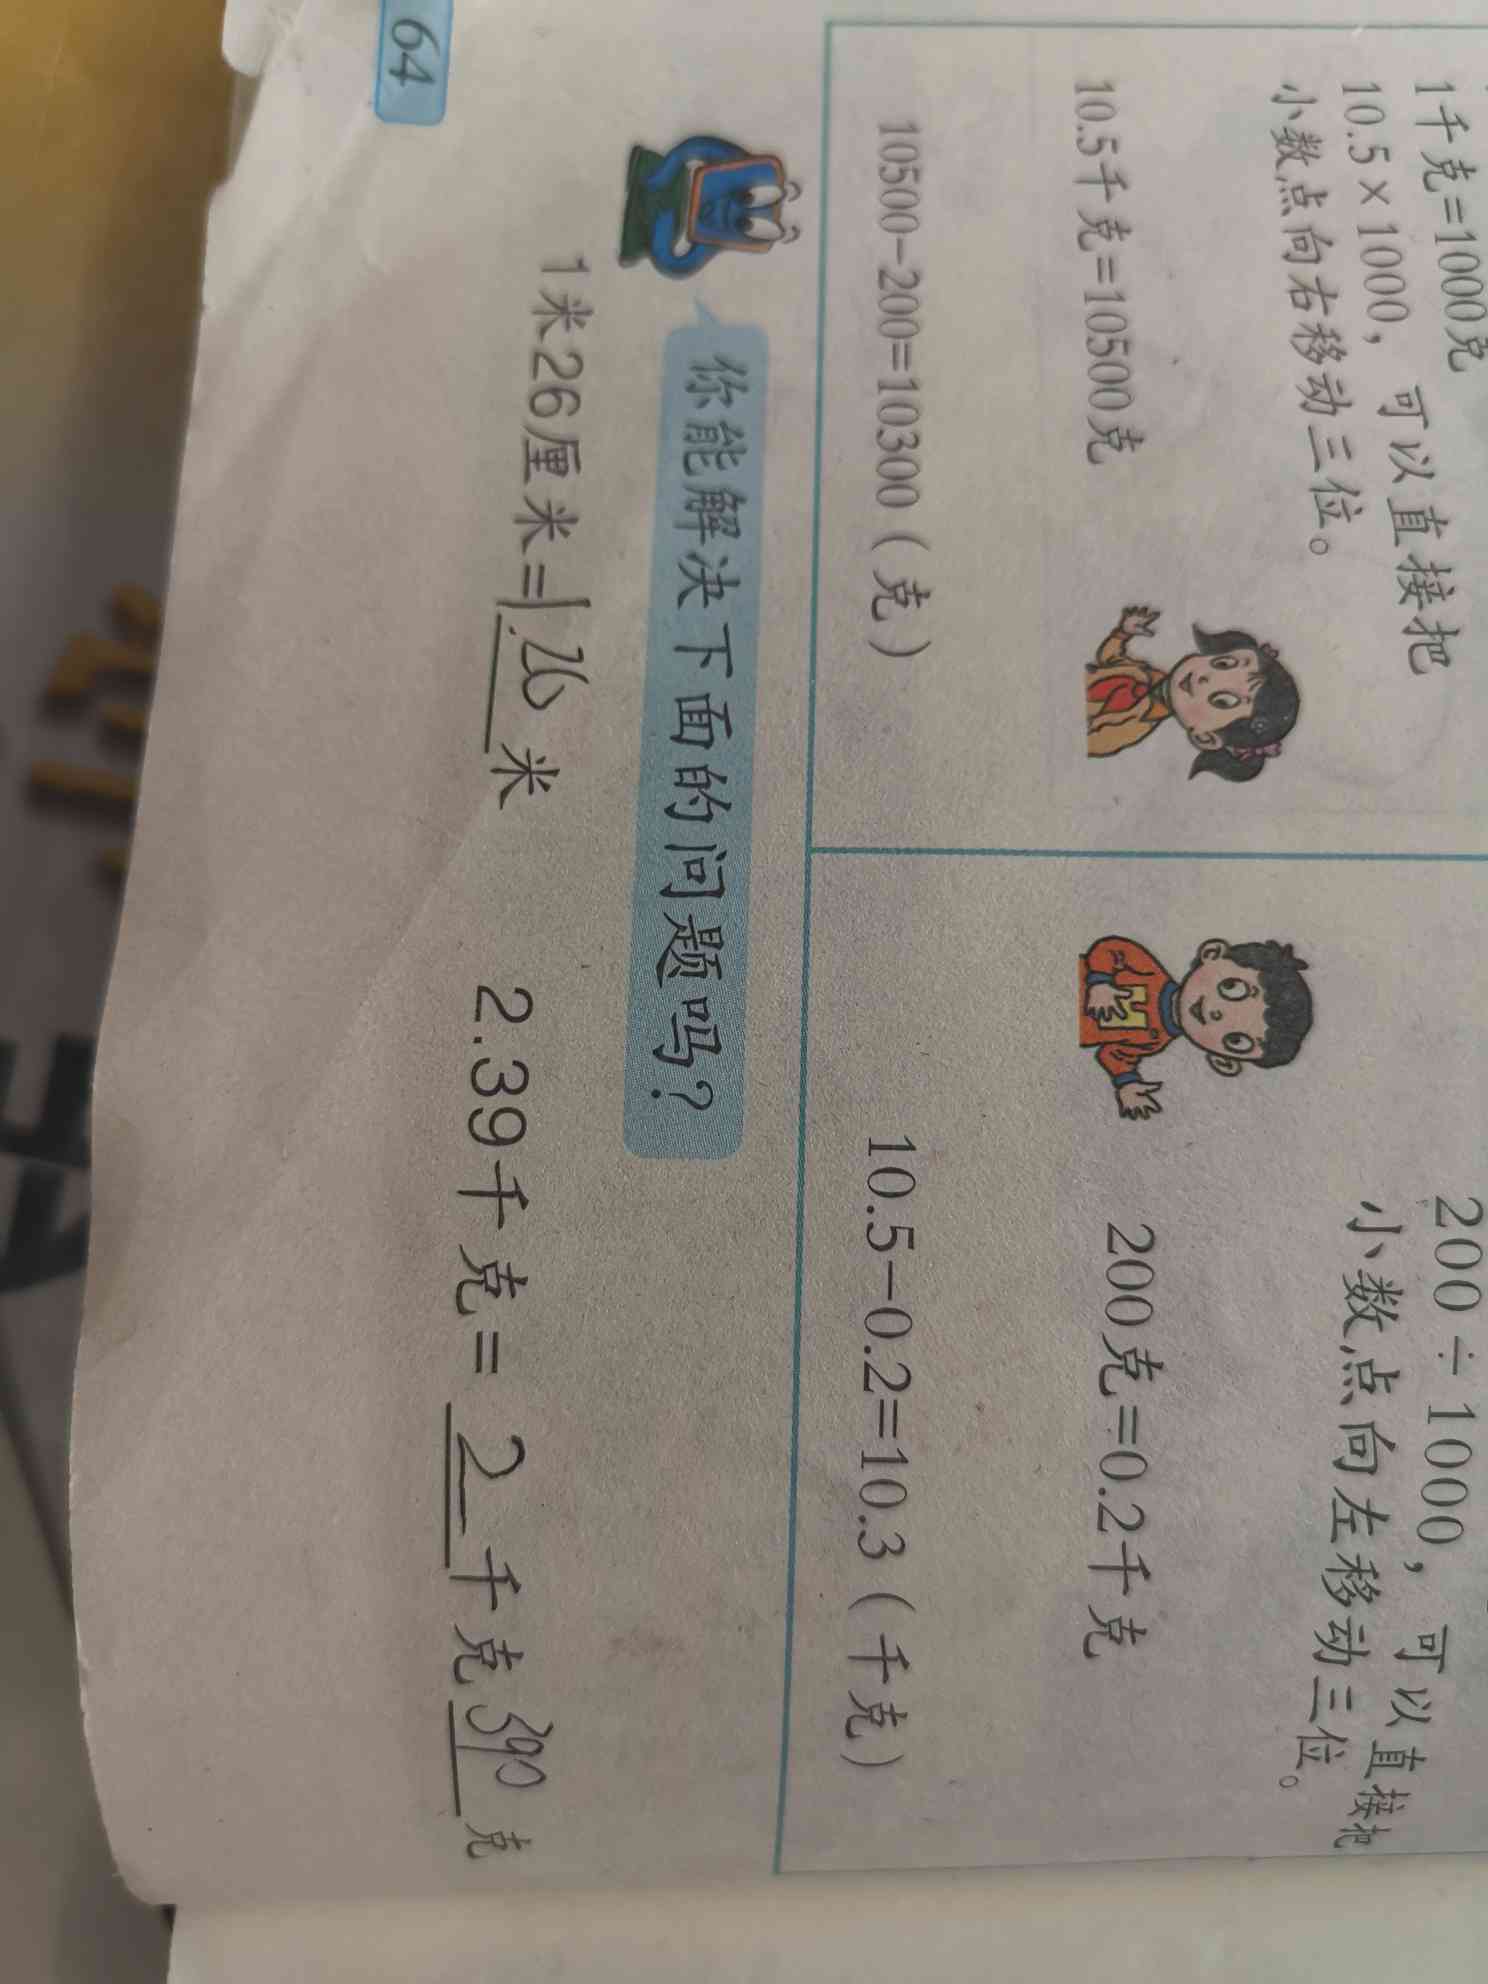 1千克=1000克
10.5×1000，可以直接把
小数点向右移动三位。
10.5千克=10500克
10500-200=10300（克）
200÷1000，可以直接把
小数点向左移动三位。
200克=0.2千克
10.5-0.2=10.3（千克）
你能解决下面的问题吗？
1米26厘米=1.26米 2.39千克=2千克390克
64